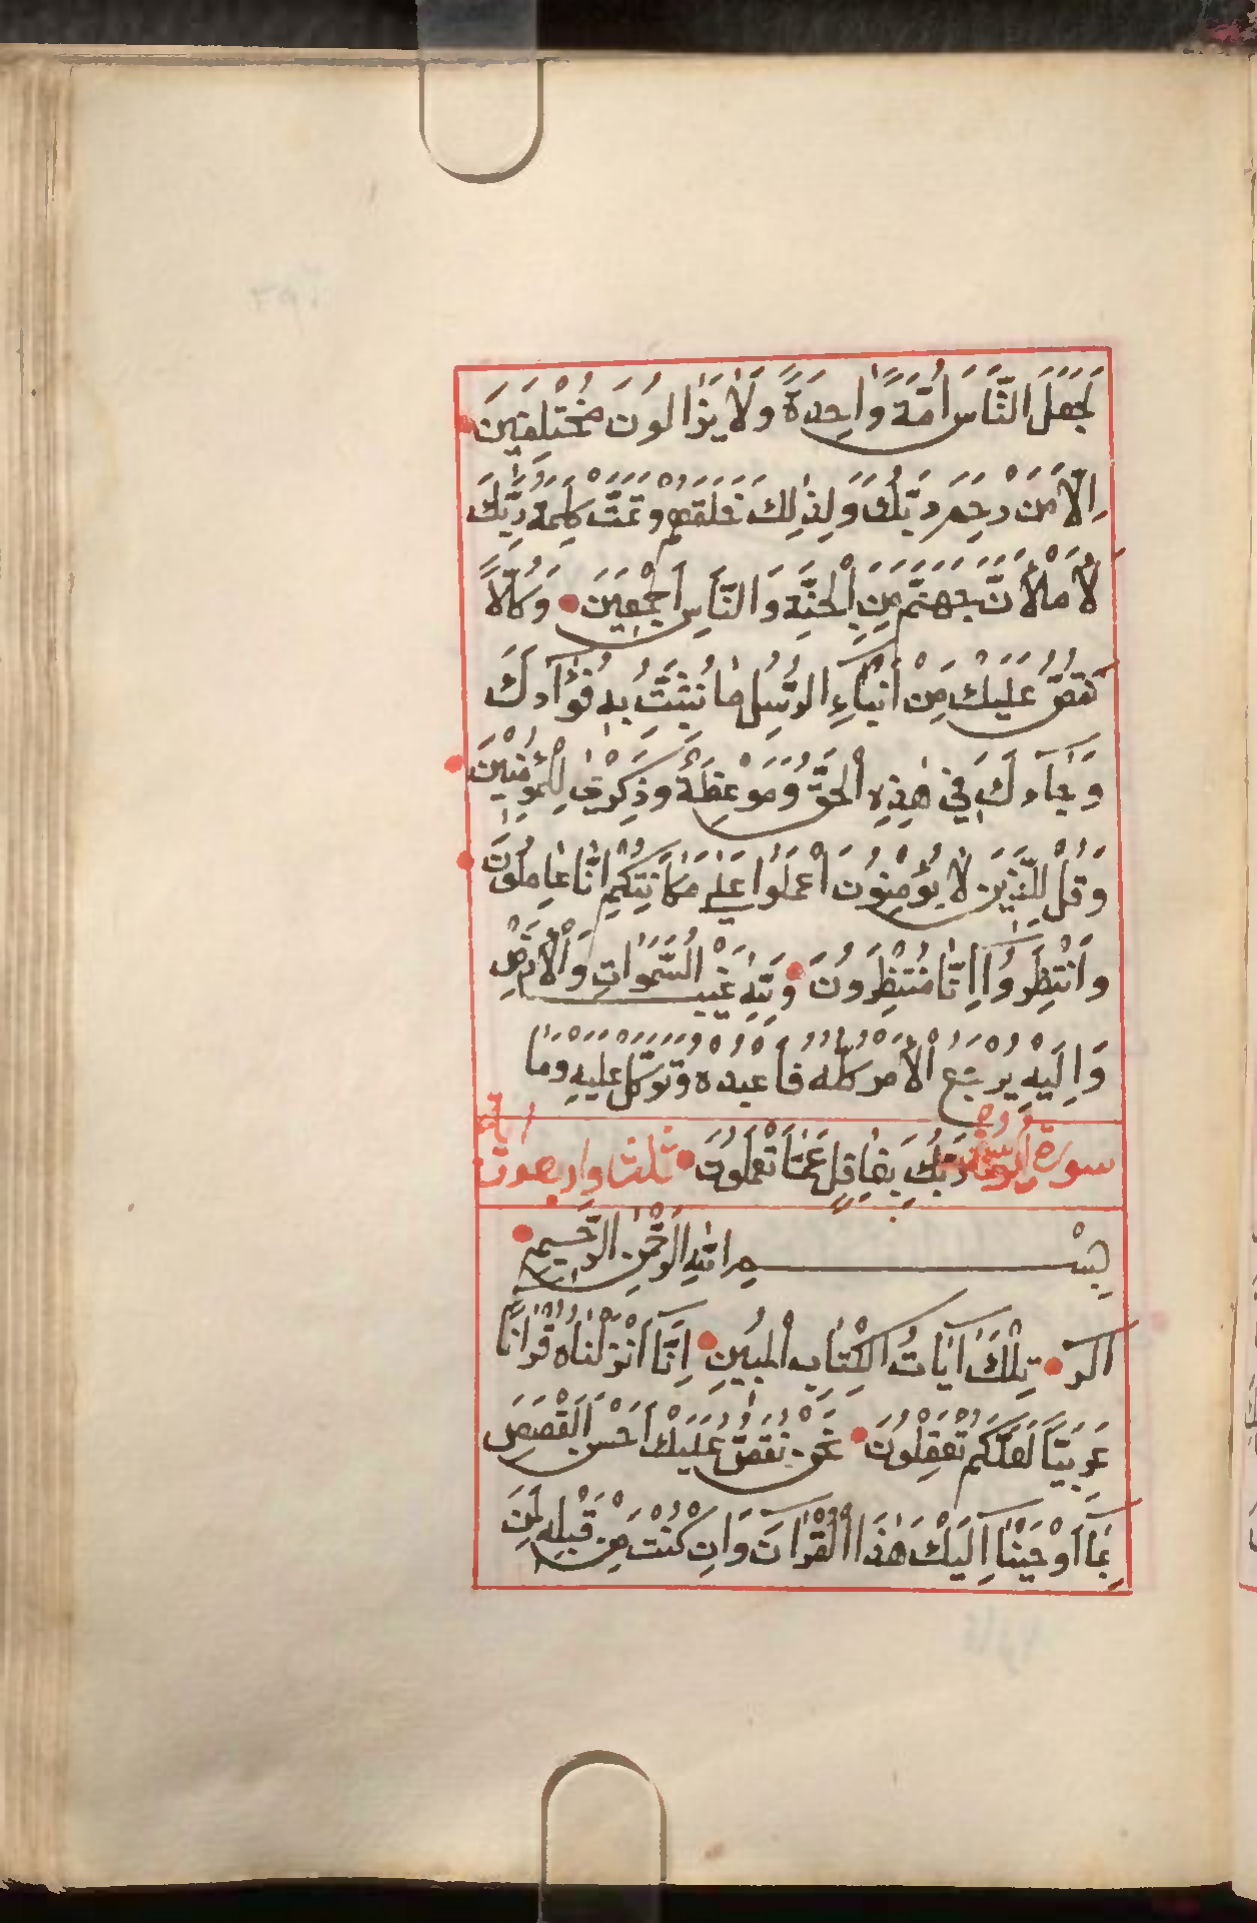 لَجَعَلَ النَّاسَ اُمَّةً وَّاحِدَةً وَلَا يَزَالُونَ مُخْتَلِفِينَ
اِلَّا مَنْ رَحِمَ رَبُّكَ وَلِذٰلِكَ خَلَقَهُمْ وَتَمَّتْ كَلِمَةُ رَبِّكَ
لَأَمْلَأَنَّ جَهَنَّمَ مِنَ الْجِنَّةِ وَالنَّاسِ اَجْمَعِينَ وَكُلًّا
نَقُصُّ عَلَيْكَ مِنْ اَنْبَاءِ الرُّسُلِ مَا نُثَبِّتُ بِهِ فُؤَادَكَ
وَجَاءَكَ فِي هٰذِهِ الْحَقُّ وَمَوْعِظَةٌ وَذِكْرٰى لِلْمُؤْمِنِينَ
وَقُلْ لِلَّذِينَ لَا يُؤْمِنُونَ اعْمَلُوا عَلٰى مَكَانَتِكُمْ اِنَّا عَامِلُونَ
وَانْتَظِرُوا اِنَّا مُنْتَظِرُونَ وَلِلّٰهِ غَيْبُ السَّمٰوَاتِ وَالْاَرْضِ
وَاِلَيْهِ يُرْجَعُ الْاَمْرُ كُلُّهُ فَاعْبُدْهُ وَتَوَكَّلْ عَلَيْهِ وَمَا
سورة يوسف رَبُّكَ بِغَافِلٍ عَمَّا تَعْمَلُونَ ثلث واربعون اية
بِسْمِ اللّٰهِ الرَّحْمٰنِ الرَّحِيمِ
الٓر تِلْكَ اٰيَاتُ الْكِتَابِ الْمُبِينِ اِنَّا اَنْزَلْنَاهُ قُرْاٰنًا
عَرَبِيًّا لَعَلَّكُمْ تَعْقِلُونَ نَحْنُ نَقُصُّ عَلَيْكَ اَحْسَنَ الْقَصَصِ
بِمَا اَوْحَيْنَا اِلَيْكَ هٰذَا الْقُرْاٰنَ وَاِنْ كُنْتَ مِنْ قَبْلِهِ لَمِنَ